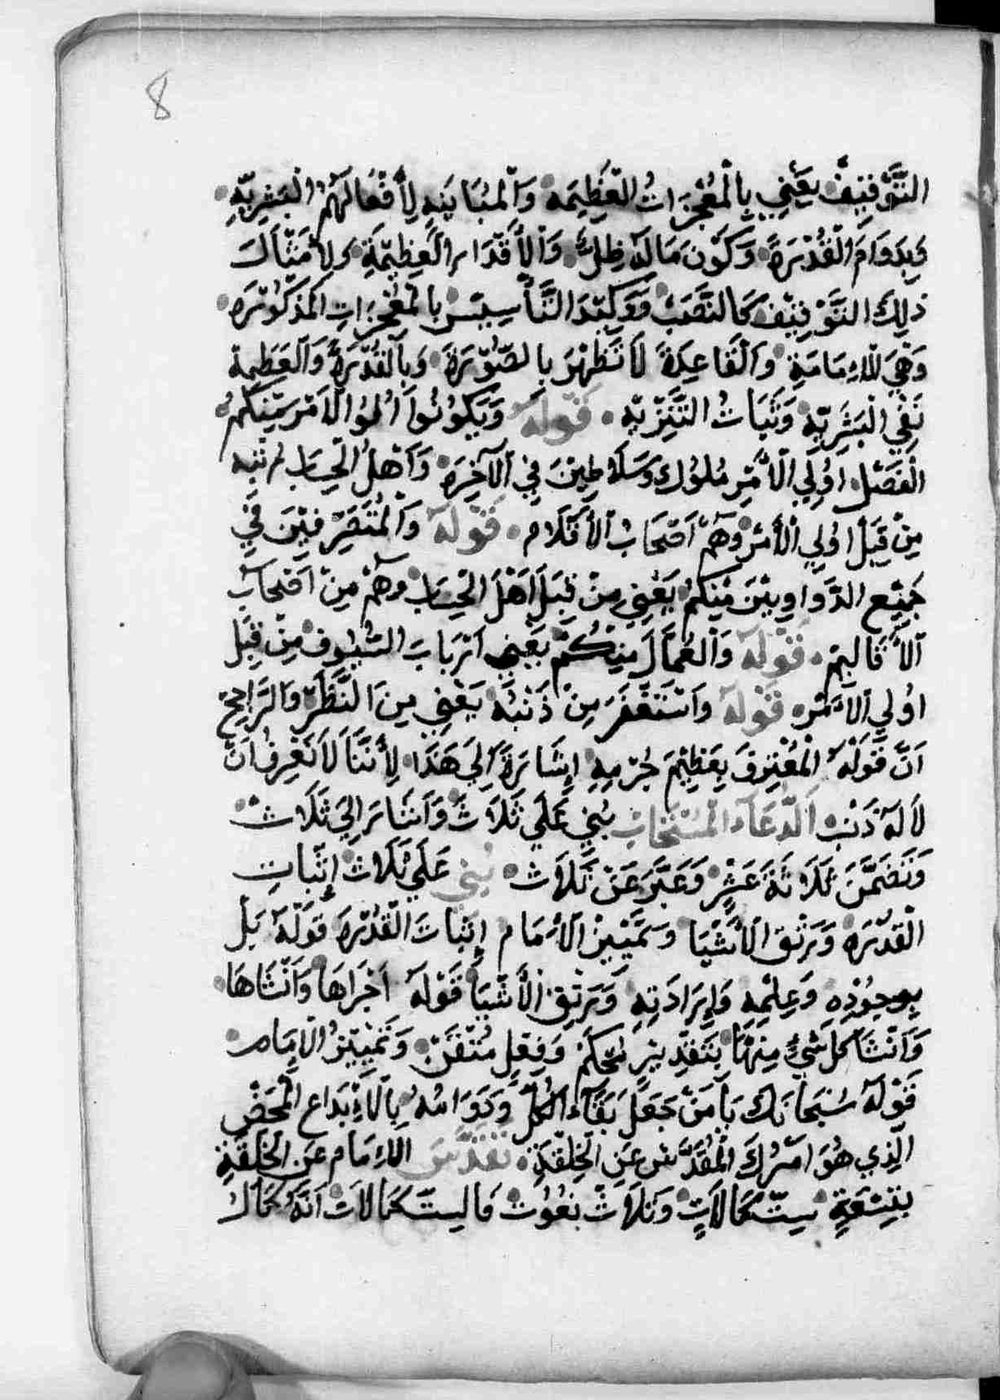 8
التَّوْقِيفْ يَعْنِي بِالْمُعْجِزَاتُ الْعَظِيمَة وَالْمُبَايَنَةِ لِأَفْعَالَهُمُ الْبَشَرِيَّةِ
وَبِدَوَامَ الْقُدْرَةَ وَكَوْنَ مَالَهُ ظِلٌّ وَالْأَقْدَارِ الْعَظِيمَةِ وَلأَمْثَالَ
ذلِكَ التَّوْقِيفْ كَالنَّصَبْ وَوَكِّيدَ التَّأْسِيسْ بِالْمُعْجِزَاتِ الْمَذْكُوْرَة
وَهِيَ لْلإِمَامَةِ وَالْقَاعِدَةَ لَا تَظْهَرَ بِالصُّوْرَةَ وَبِالْقُدْرَةُ وَالْعَظِيمَة
نَفْيِ الْبَشَرِيّةِ وَثَبَاتُ التَّنْزِيْهِ قَوْلُهُ وَيَكُونُوا أُولُوا الْأَمْرَ مِنْكُمْ
الْفَصْلْ أُوْلِي الْأَمْرِ مُلُوك وَسَلَاطِيْنَ فِي الْآخِرَة وَأَهْلُ الْحِسَابْ رُتْبَه
مِنْ قِبَلْ أُولِي الْأَمْرْ وَهُمْ أَصْحَابْ الْأَقْلَام قَوْلُهُ وَالْمُتَصَرِّفِيْنَ فِي
جَمِيْعِ الدَّوَاوِيْنَ مِنْكُمْ يَعْنِي مِنْ قِبَلَ أَهْلَ الْحِسَابْ وَهُمْ مِنْ أَصْحَابْ
الْأَقَالِيمْ قَوْلُهُ وَالْعُمَّالَ مِنْكُمْ يَعْنِي أَرْبَابَ السُّيُوف مِنْ قِبَلْ
أُولِي الْأَمْرْ قَوْلُهُ وَاسْتَغْفَرَ مِنْ ذَنْبُهْ يَعْنِي مِنَ النَّظَرْ وَالرَّاجِحْ
أَنَّ قَوْلُهُ الْمُعْتَرِفَ بِعَظِيْمَ جُرْمِهِ إِشَارَةَ إِلَى هَذَا لِأَنَّنَا لَا نَعْرِفُ أَنْ
لَا لَهُ ذَنْبْ الدُّعَاءَ الْمُسْتَجَابْ بُنِيَ عَلَى ثَلَاثَ وَأَشَارَ إِلَى ثَلَاثْ
وَتَضَمَّنَ ثَلَاثَةَ عَشْرِ وَعَبَّرَ عَنْ ثَلَاثْ بُنِيَ عَلَى ثَلَاثْ إِثْبَاتِ
الْقُدْرَه وَرَتْقَ الْأَشْيَا وَتَمْيِيْزْ الْأَمَام إِثْبَاتَ الْقُدْرَة قَوْلُهُ بَلْ
بِوجُوْدِهِ وَعِلْمِهِ وَإِرَادَتِهِ وَرَتْقِ الْأَشْيَا قَوْلَهُ أَجْرَاهَا وَأَنْشَاهَا
وَأَنْشَأَ كُلَّ شَيْءٍ مِنْهَا بِتَقْدِيْرٍ مُحْكَمْ وَفِعْلٍ مُتْقَنْ وَتَمْيِيْزُ الْإِمَام
قَوْلُهُ سُبْحَانَكَ يَا مَنْ جَعَلَ بَقَاءَ الْكُلِّ وَدَوَامُهُ بِالْأَبْدَاعِ الْمَحْضِ
الَّذِي هُوَ امْرُكَ الْمُقَدَّسْ عَنِ الْخِلْقَةِ تَقَدَّسَ الْإِمَام عَنِ الْخِلْقَةِ
بِتِسْعَةٍ سِتّ كَمَالَاتٍ وَثَلَاثْ نُعُوْتْ فَالسِتَّ كَمَالَاتْ أَنَّهُ كَمَالْ